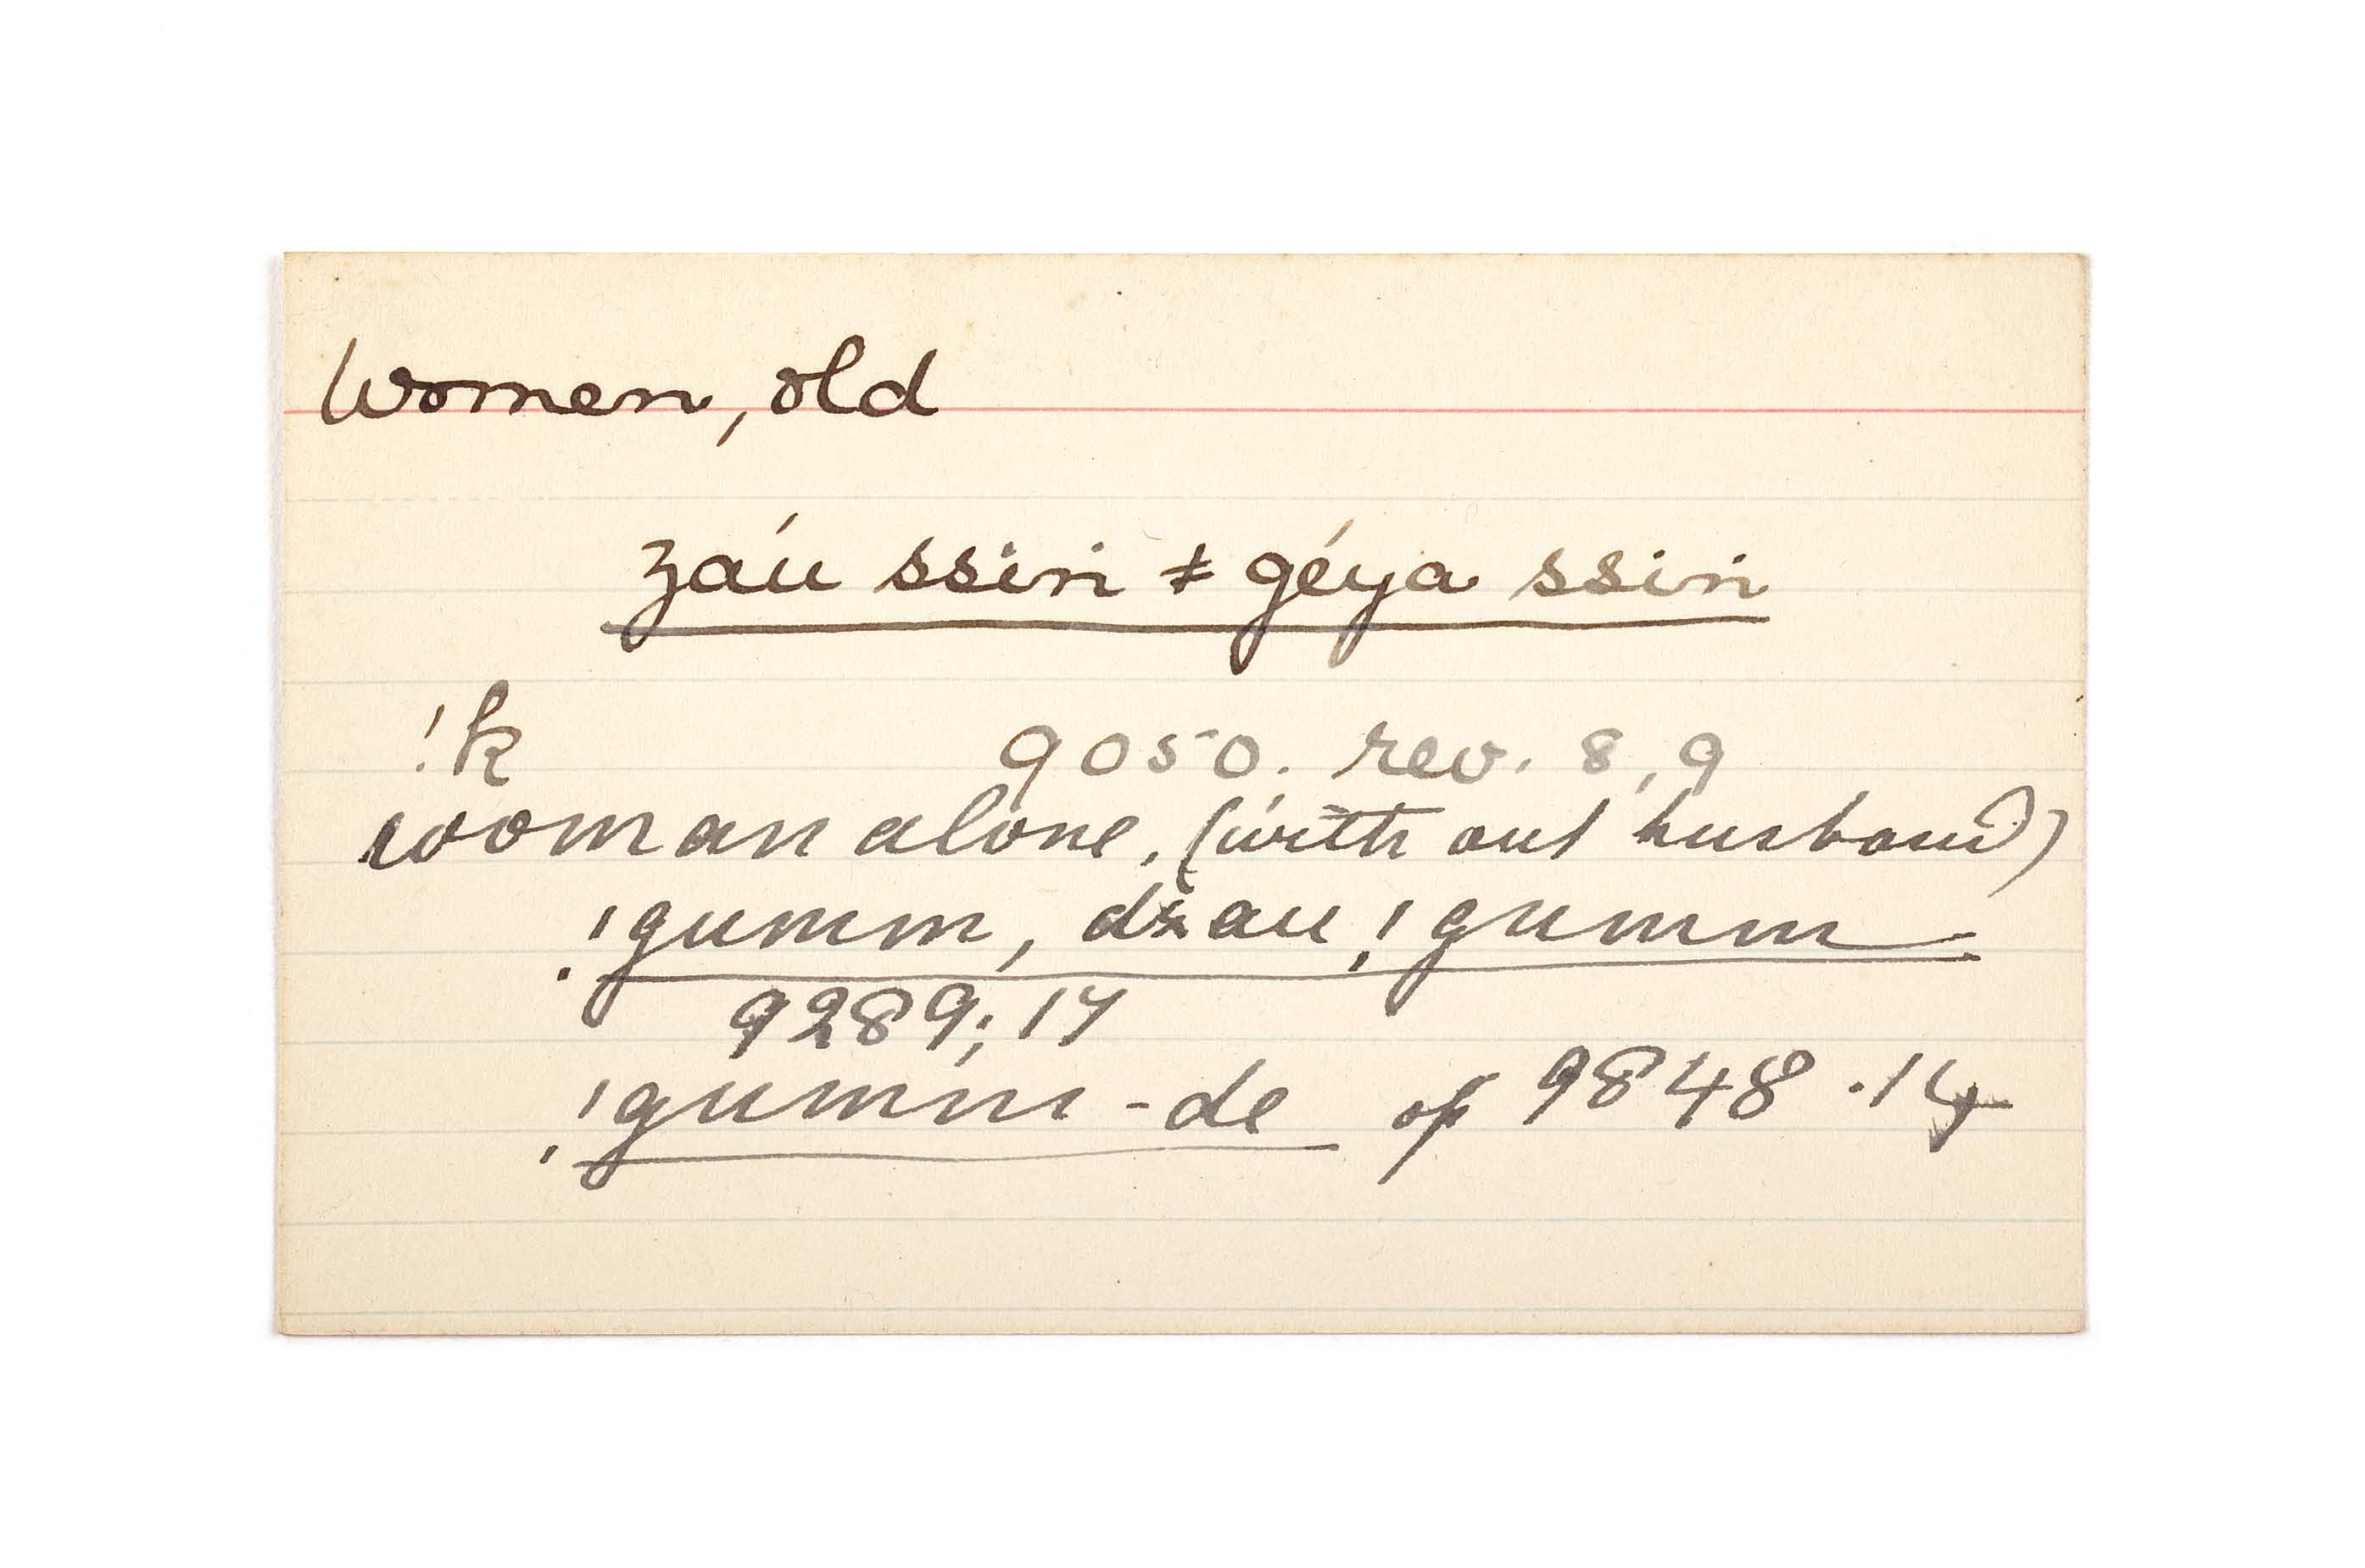 Women, old
záu ssin ǂ géya ssin
!k 9050. rev. 8, 9
woman alone, (with out husband)
!gumm, dzau !gumm
9289; 17
!gumm - de op 9848 . 14